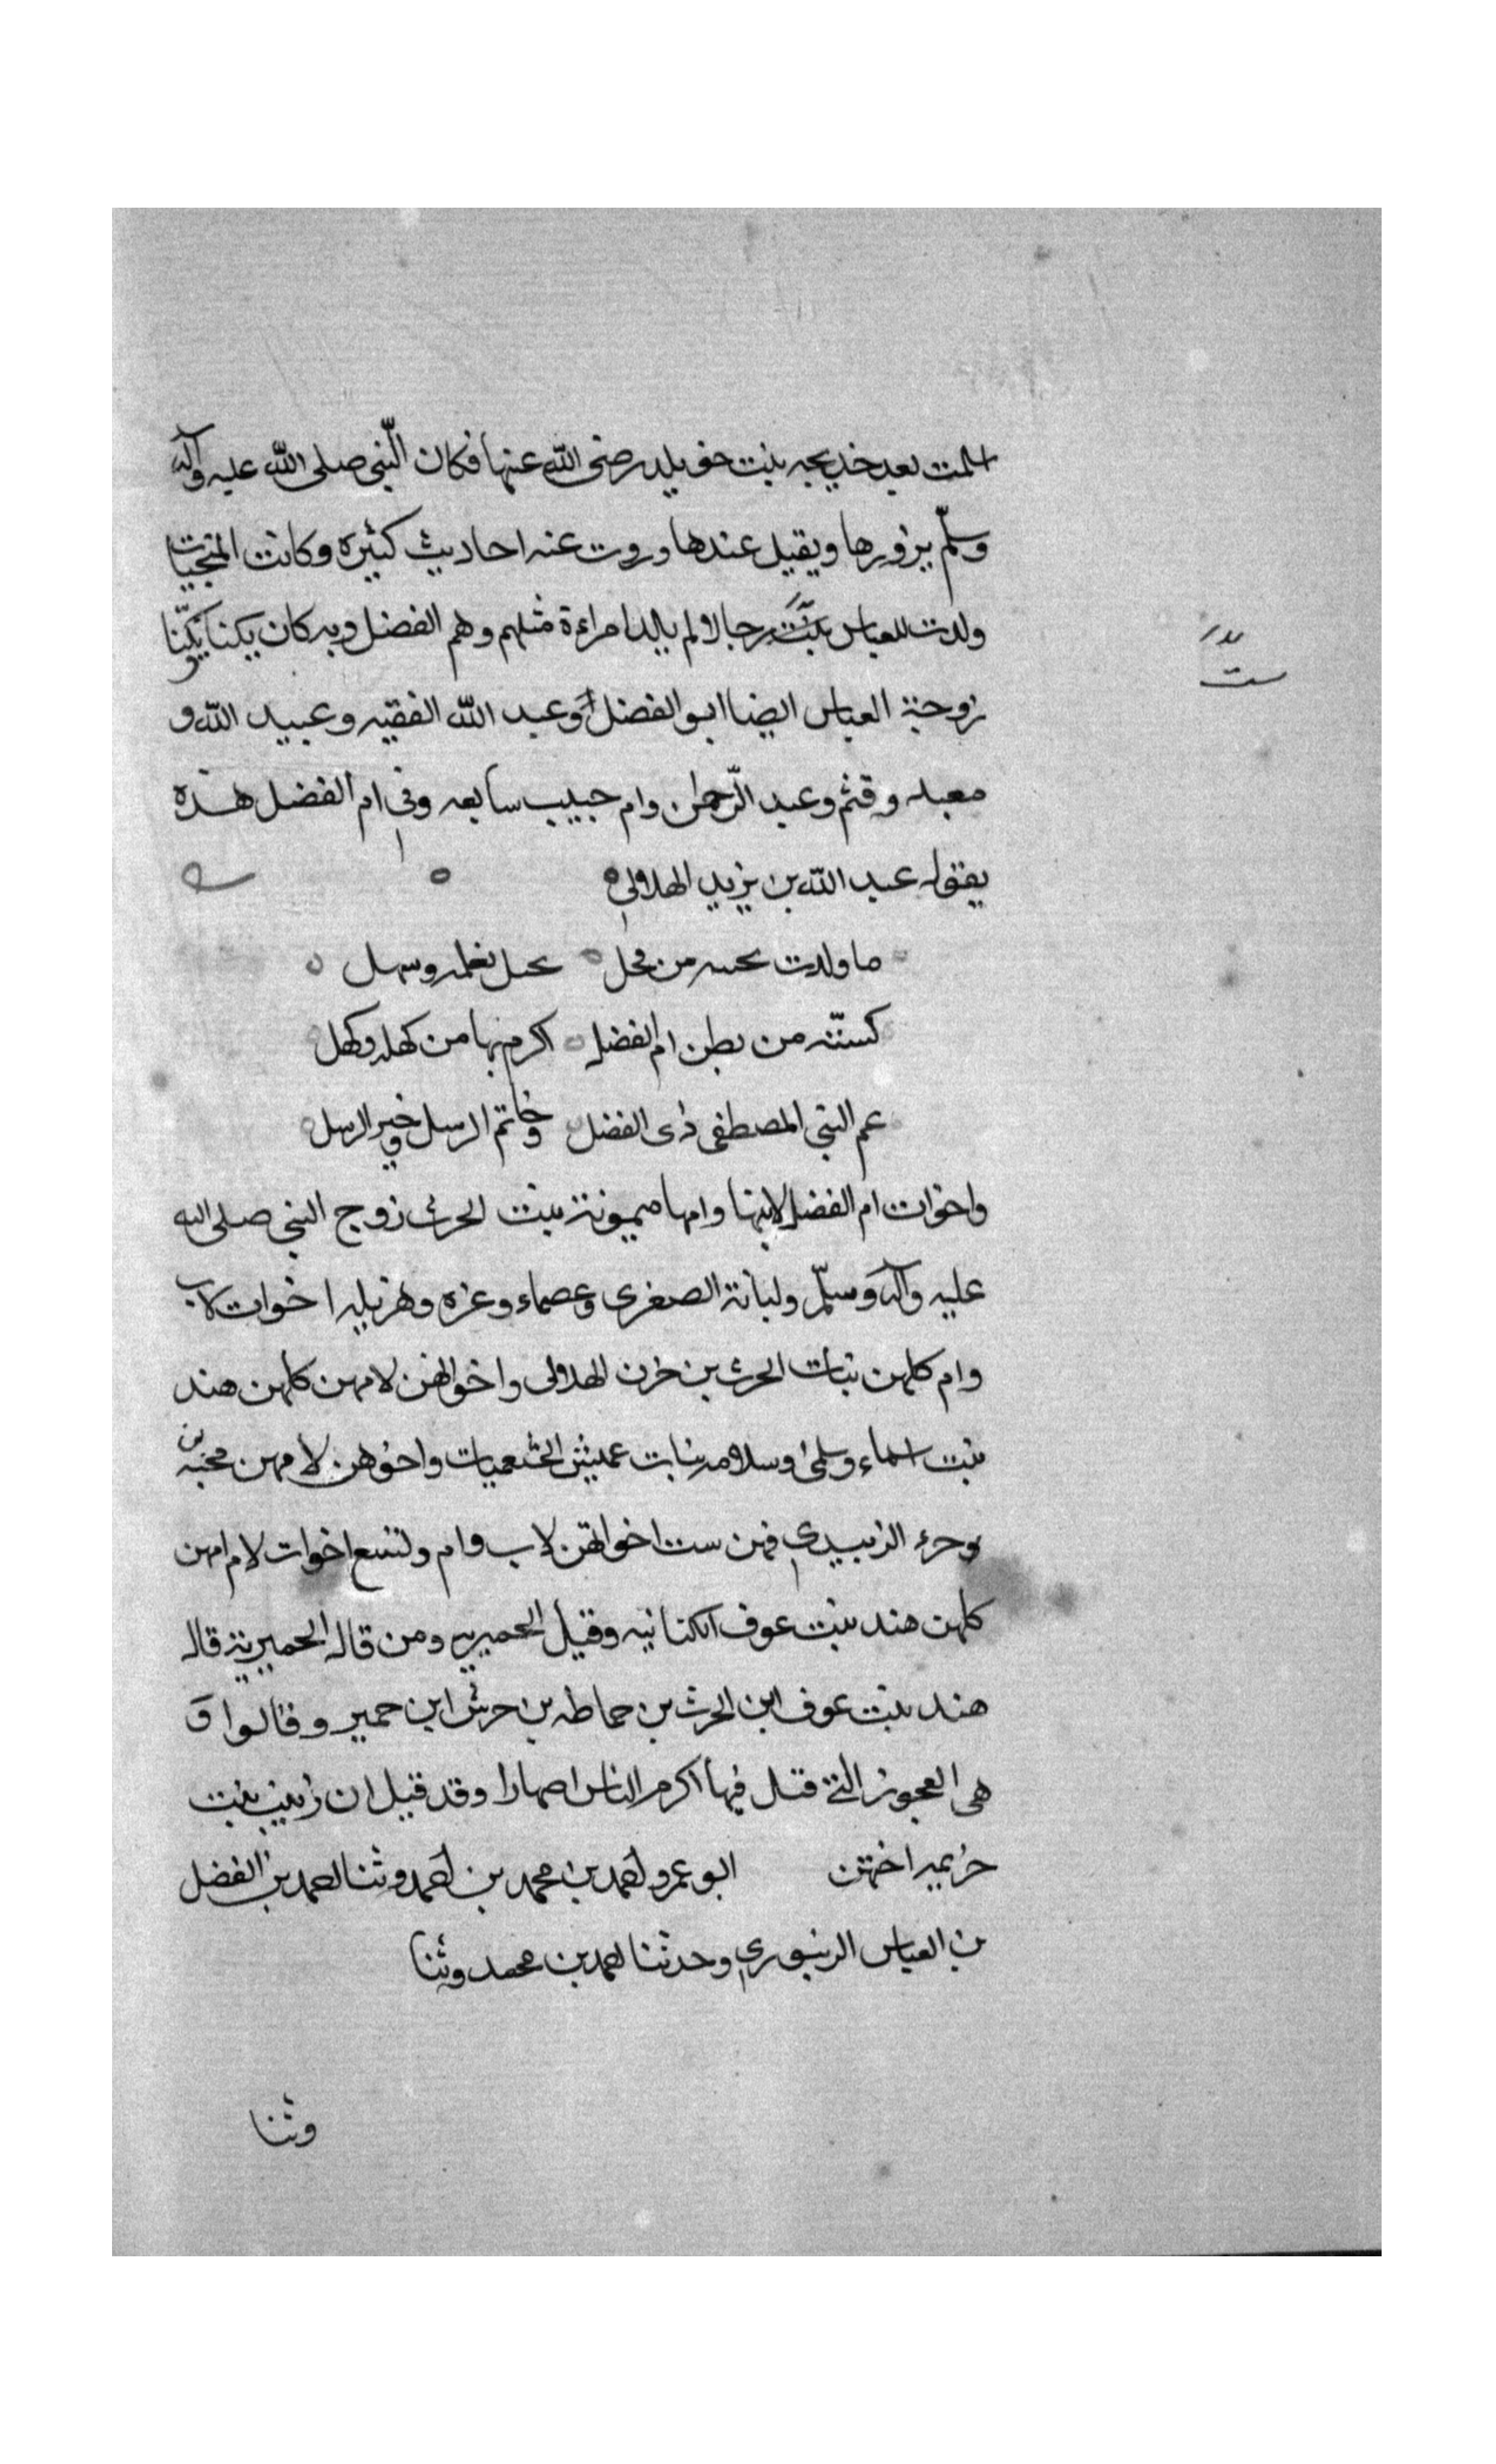 اسلمت بعد خديجه بنت خويلد رضى الله عنها فكان النّبى صلى الله عليه وآله
وسلّم يزورها ويقيل عندها وروت عنه احاديث كثيره وكانت المنجيات
ولدت للعباس رجالا لم يالد امراءة مثلهم وهم الفضل وبه كان يكنا
زوجة العباس ايضا ابو الفضل وعبد الله الفقيه وعبيد الله و
معبد وقثم وعبد الرّحمن وام حبيب سابعه وفى ام الفضل هذه
يقول عبد الله بن يزيد الهلالى
ما ولدت من فحل وسهل
كستّه من بطن ام الفضل اكرم بها من كهله وكهل
عم النبى المصطفى ذى الفضل وخاتم الرسل وخير الرسل
واخوات ام الفضل لابيها وامها ميمونة بنت الحرث زوج النبى صلى الله
عليه وآله وسلّم ولبانة الصغرى وعصماء وعزه وهزيله اخوات لاب
وام كلهن بنات الحرث بن حزن الهلالى واخواتهن لامهن كلهن هند
بنت اسماء وسلمى وسلامه بنات عميش الخثعميات واخوهن لامهن محميه بن
جزء الزبيدى فهن ست اخواتهن لاب وام وتسع اخوات لام امهن
كلهن هند بنت عوف الكنانيه وقيل الحميريه ومن قال الحميرية قال
هند بنت عوف ابن الحرث بن حماطه بن حرش ابن حمير وقالوا و
هى العجوز التى قيل فيها اكرم الناس اصهارا وقد قيل ان زينب بنت
خزيمه اختهن ابو عمرو احمد بن محمد بن احمد وثنا احمد بن الفضل
بن العباس الدينورى وحدثنا احمد بن محمد وثنا
وثنا